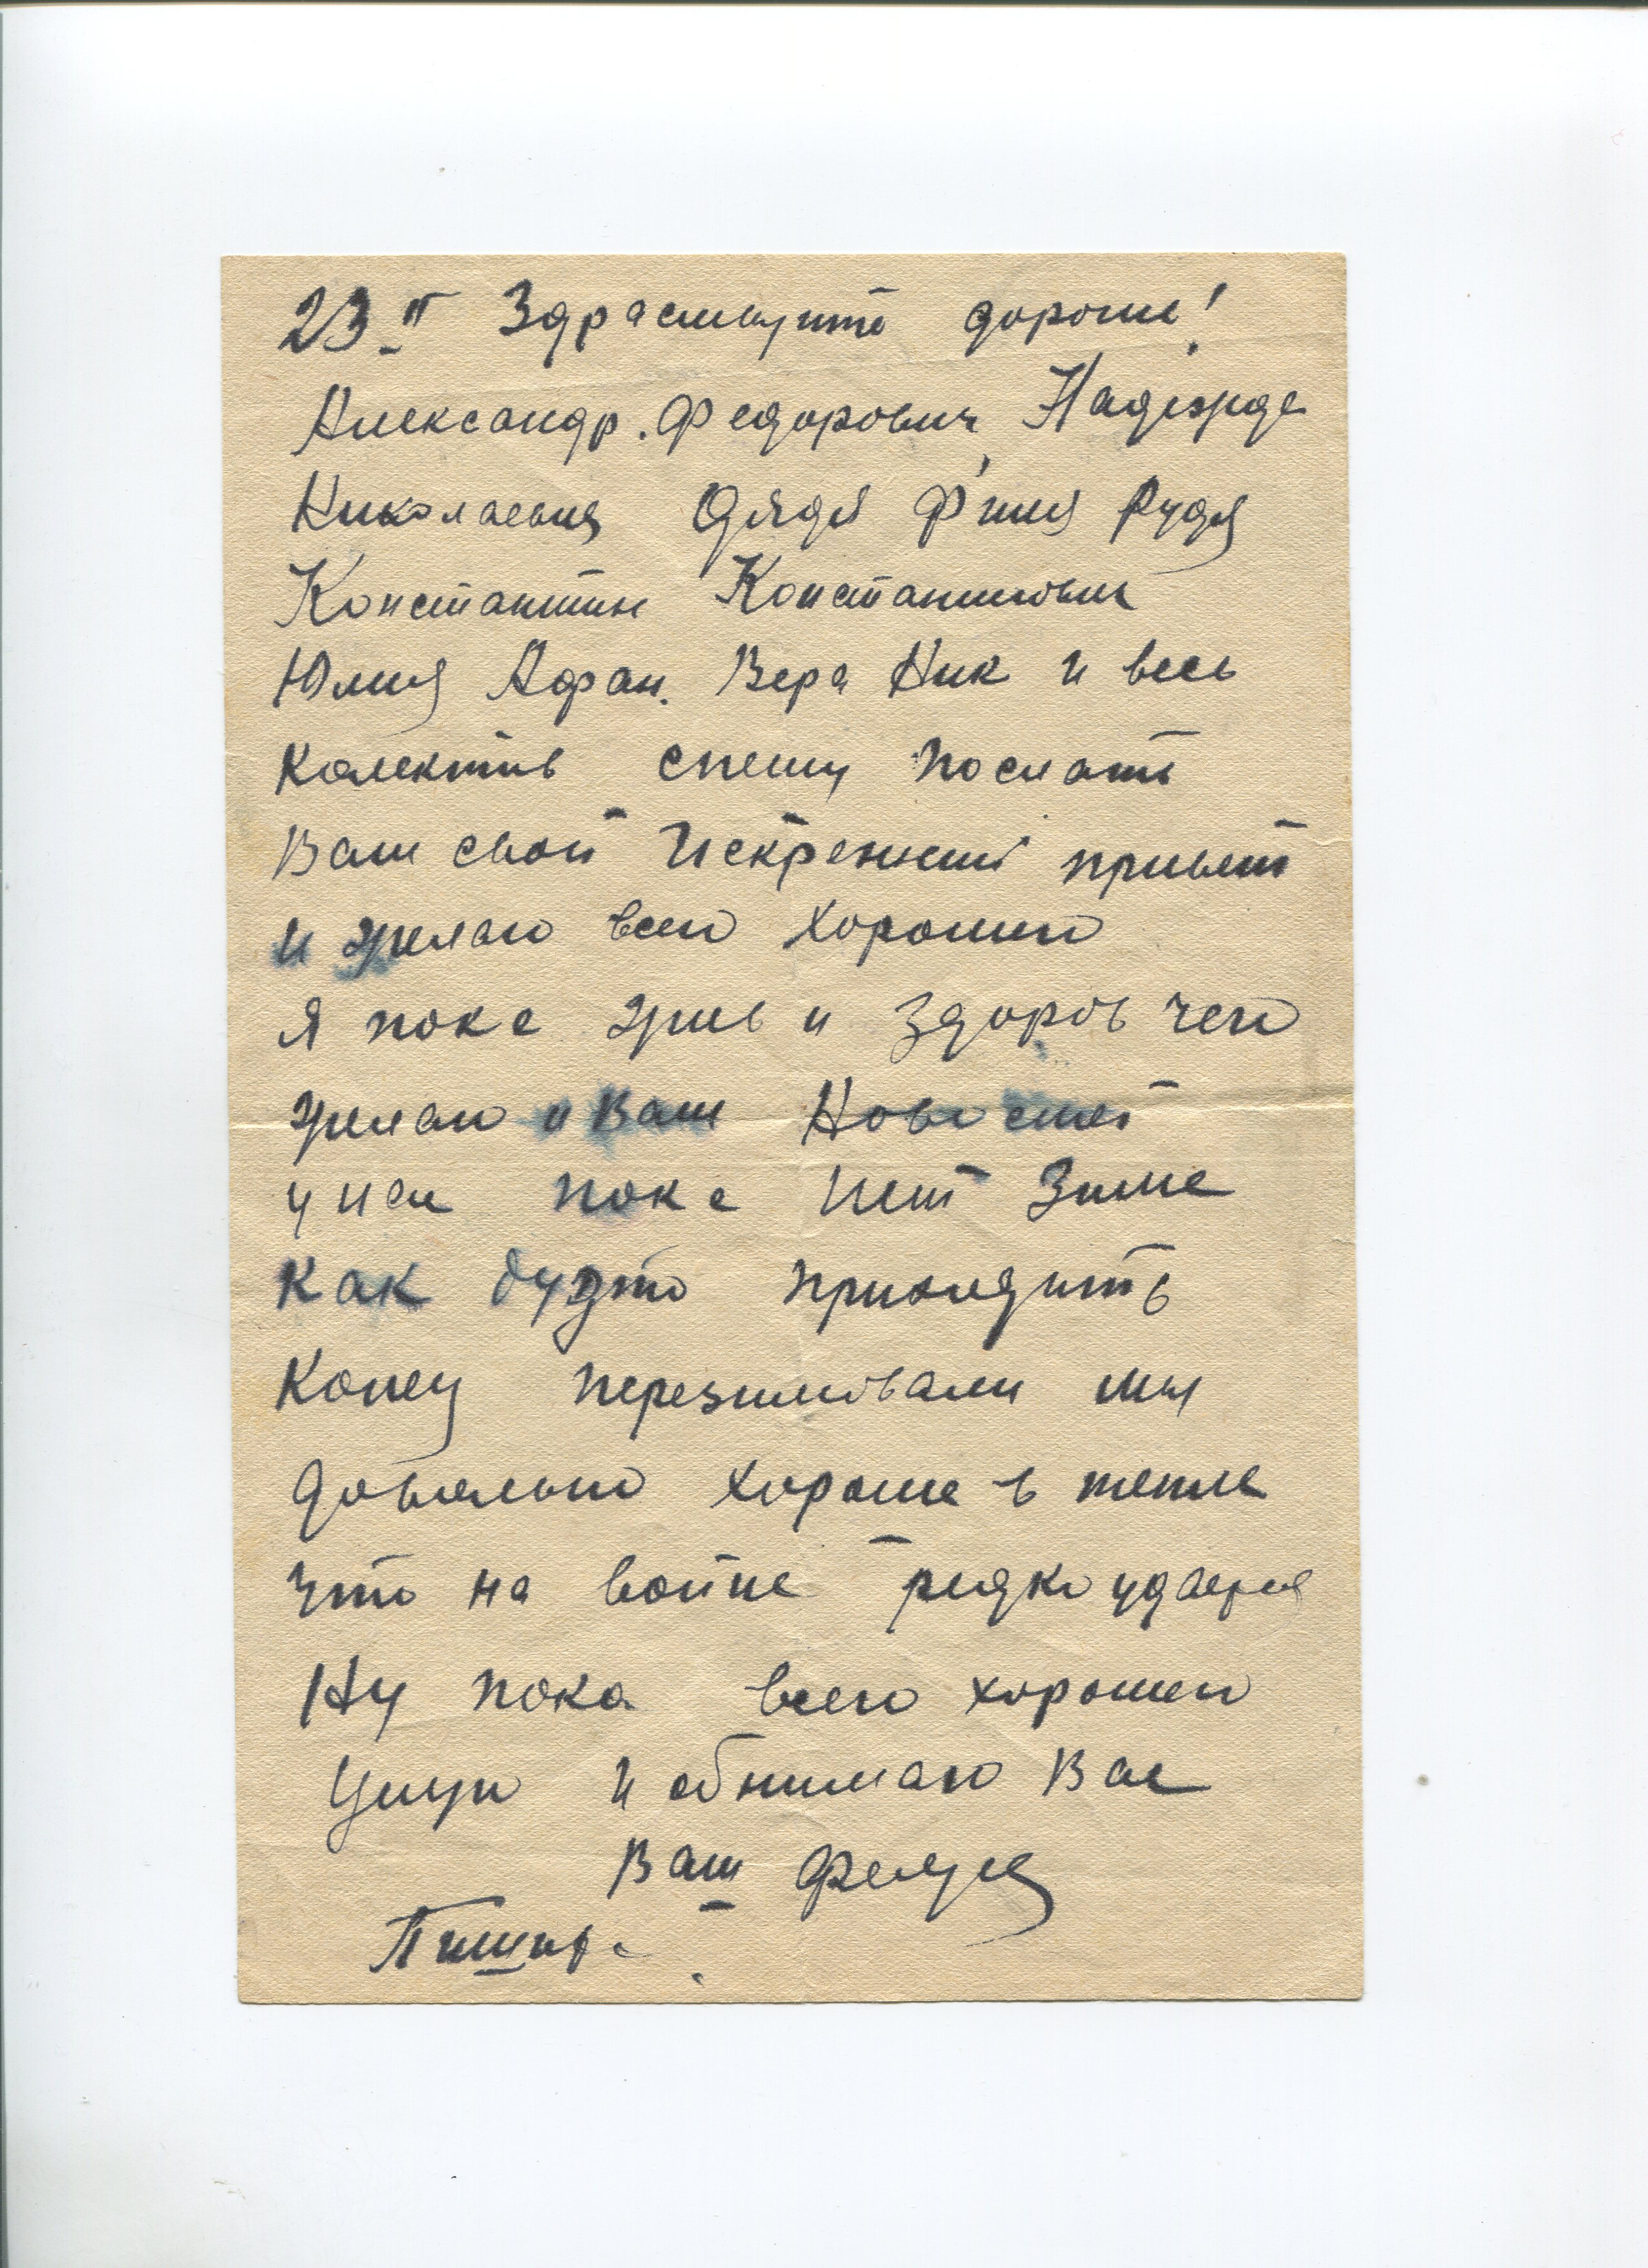 23 II Здраствуйте дорогие!
Александр. Федорович, Надежда
Николаевна Дядя Р Рудя
Константин Константинович
Юлия Афан. Вера Ник и весь
Колектив спешу послать
Вам свой Искренний привет
и желаю всего хорошего
Я пока жив и здоров чего
желаю и Вам Новостей
у нас пока нет Зима
как будто приходить
Конец перезимовали мы
довольно хорошо в тепле
что на войне редко удается
Ну пока всего хорошего
Целую и обнимаю Вас
Ваш
Пишите